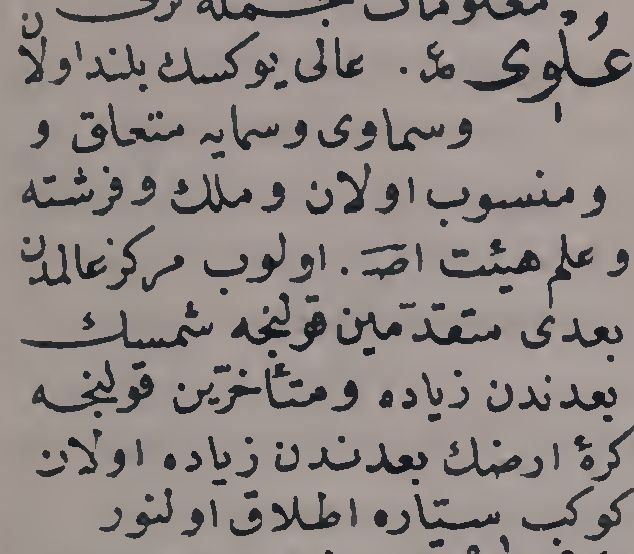 معلومات جمله نری ن
عُلْوِی مذ. عالی یوكسك بلند اولان
وسماوی وسمایه متعلق و
ومنسوب اولان وملك وفرشته
وعلم هیئت اصـ. اولوب مركز عالمدن
بعدی متقدّمین قولنجه شمسك
بعدندن زیاده ومتأخرّین قولنجه
كرهٔ ارضك بعدندن زیاده اولان
كوكب سیّاره اطلاق اولنور